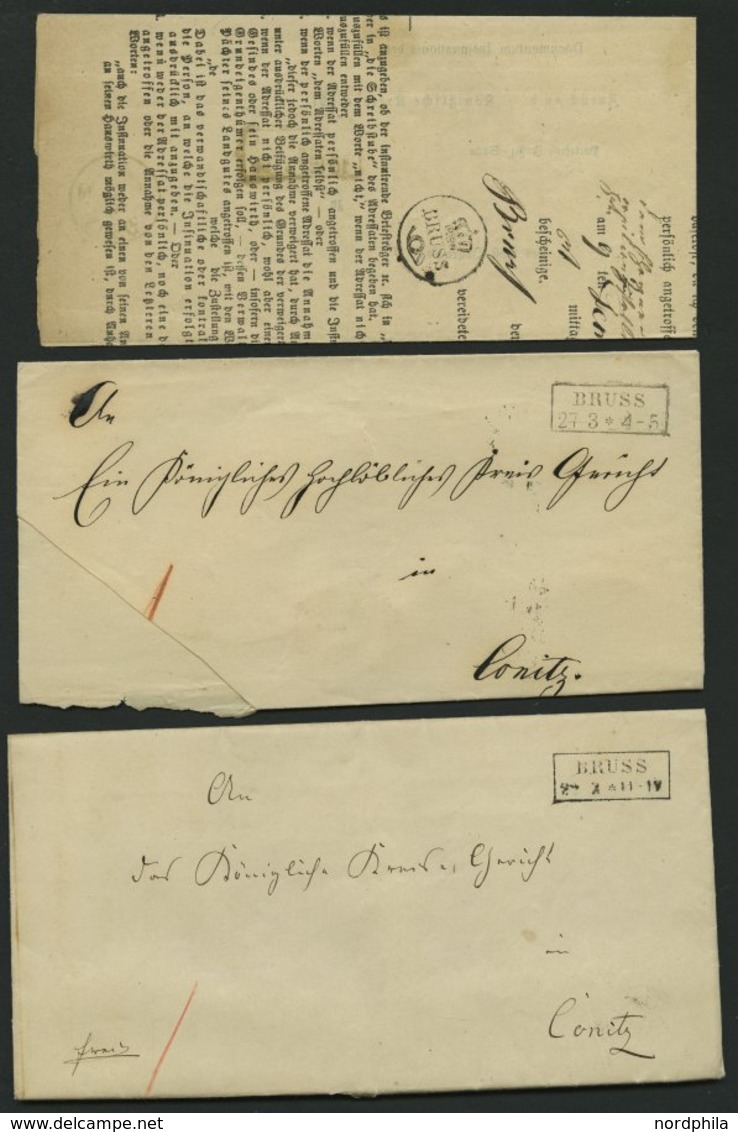 s ist anzugeben, ob der insinuirende Briefträger ꝛc. sich in „
er in „die Schreibstube“ des Adressaten begeben hat,
uszufüllen mit dem Worte „nicht,“ wenn der Adressat nich
auszufüllen entweder
wenn der Adressat persönlich angetroffen und die Inst
Worten „dem Adressaten selbst“ — oder
wenn der persönlich angetroffene Adressat die Annahm
„dieser jedoch die Annahme verweigert hat, durch A
unter ausdrücklicher Beifügung des Grundes der verweiger
wenn der Adressat nicht persönlich, wohl aber einer
Gesindes oder sein Hauswirth, oder — insofern di
Grundeigenthümer erfolgen soll, — dessen Verwal
Pächter seines Landgutes angetroffen ist, mit den W
„de welche die Zustellung
Dabei ist das verwandtschaftliche oder kontrat
die Person, an welche die Insinuation erfolgt
ausdrücklich mit anzugeben. — Oder
wenn weder der Adressat persönlich, noch eine d
angetroffen oder die Annahme von den Letzteren
Worten:
„auch die Insinuation weder an einen von seinen An
an seinen Hauswirth möglich gewesen ist, durch Anhä
persönlich angetroffe
am 9 ten
mittag
bescheinige.
Bruss
der
vereidete
BRUSS
BRUSS
27 3 * 4-5
An
Ein Königliches Hochlöbliches Kreis Gericht
in
Conitz.
BRUSS
* 11-1V
An
das Königliche Kreis-Gericht
in
Conitz
frei
nordphila